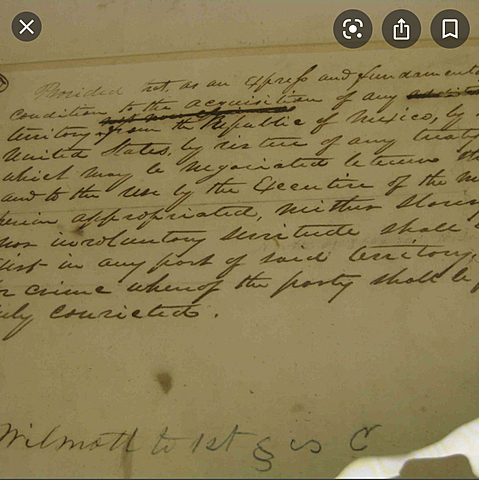 Provided that, as an express and fundamental
condition to the acquisition of any
territory from the Republic of Mexico, by
United States, by virtue of any treaty
which may be negotiated between the
and to the use by the Executive of the m
herein appropriated, neither slavery
nor involuntary servitude shall e
ist in any part of said territory,
or crime whereof the party shall be f
uly convicted.
Wilmott to 1st § is C